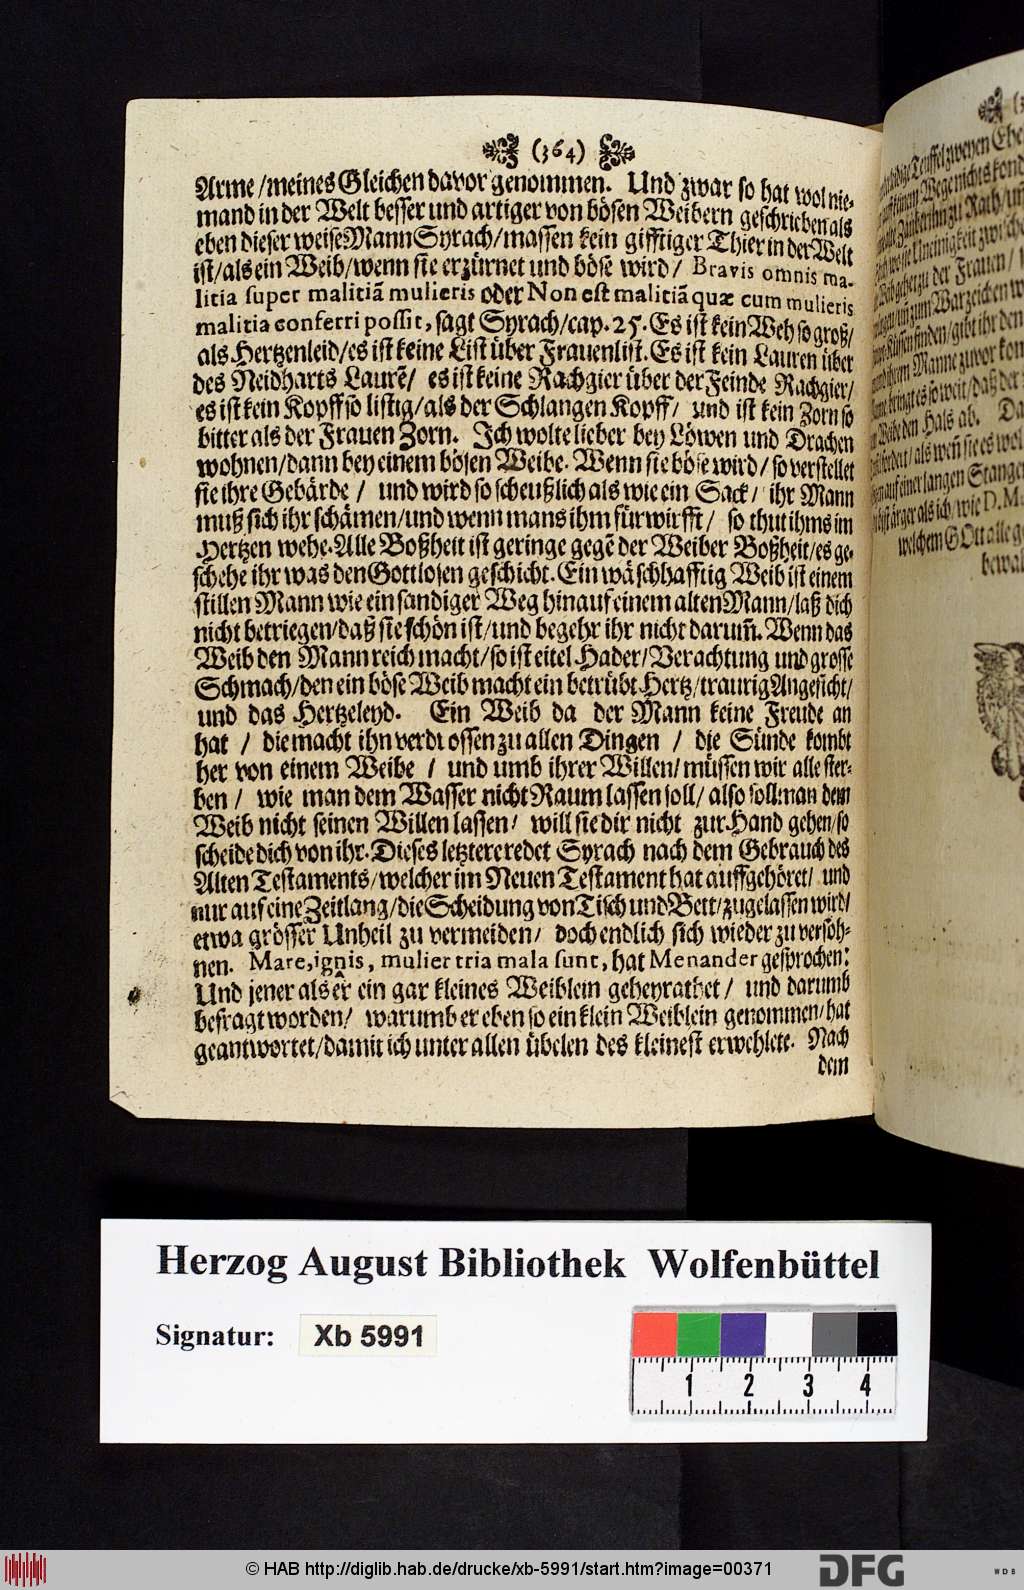 (364)
Arme / meines Gleichen davor genommen. Und zwar so hat wol nie-
mand in der Welt besser und artiger von bösen Weibern geschrieben als
eben dieser weise Mann Syrach / massen kein gifftiger Thier in der Welt
ist / als ein Weib / wenn sie erzürnet und böse wird / Bravis omnis ma-
litia super malitiã mulieris oder Non est malitiã quæ cum mulieris
malitia conferri possit, sagt Syrach / cap. 25. Es ist kein Weh so groß /
als Hertzenleid / es ist keine List über Frauenlist. Es ist kein Lauren über
des Neidharts Laurẽ / es ist keine Rachgier über der Feinde Rachgier /
es ist kein Kopff so listig / als der Schlangen Kopff / und ist kein Zorn so
bitter als der Frauen Zorn. Ich wolte lieber bey Löwen und Drachen
wohnen / dann bey einem bösen Weibe. Wenn sie böse wird / so verstellet
sie ihre Gebärde / und wird so scheußlich als wie ein Sack / ihr Mann
muß sich ihr schämen / und wenn mans ihm fürwirfft / so thut ihms im
Hertzen wehe. Alle Boßheit ist geringe gegẽ der Weiber Boßheit / es ge-
schehe ihr was den Gottlosen geschicht. Ein wäschhafftig Weib ist einem
stillen Mann wie ein sandiger Weg hinauf einem alten Mann / laß dich
nicht betriegen / daß sie schön ist / und begehr ihr nicht darum̃. Wenn das
Weib den Mann reich macht / so ist eitel Hader / Verachtung und grosse
Schmach / den ein böse Weib macht ein betrübt Hertz / traurig Angesicht /
und das Hertzeleyd. Ein Weib da der Mann keine Freude an
hat / die macht ihn verdrossen zu allen Dingen / die Sünde kombt
her von einem Weibe / und umb ihrer Willen / müssen wir alle ster-
ben / wie man dem Wasser nicht Raum lassen soll / also soll man dem
Weib nicht seinen Willen lassen / will sie dir nicht zur Hand gehen / so
scheide dich von ihr. Dieses letztere redet Syrach nach dem Gebrauch des
Alten Testaments / welcher im Neuen Testament hat auffgehöret / und
nur auf eine Zeitlang / die Scheidung von Tisch und Bett / zugelassen wird /
etwa grösser Unheil zu vermeiden / doch endlich sich wieder zu versöh-
nen. Mare, ignis, mulier tria mala sunt, hat Menander gesprochen:
Und jener als er ein gar kleines Weiblein geheyrathet / und darumb
befragt worden / warumb er eben so ein klein Weiblein genommen / hat
geantwortet / damit ich unter allen übelen des kleinest erwehlete. Nach
dem
Herzog August Bibliothek Wolfenbüttel
Signatur: Xb 5991
1 2 3 4
© HAB http://diglib.hab.de/drucke/xb-5991/start.htm?image=00371
DFG
WDB